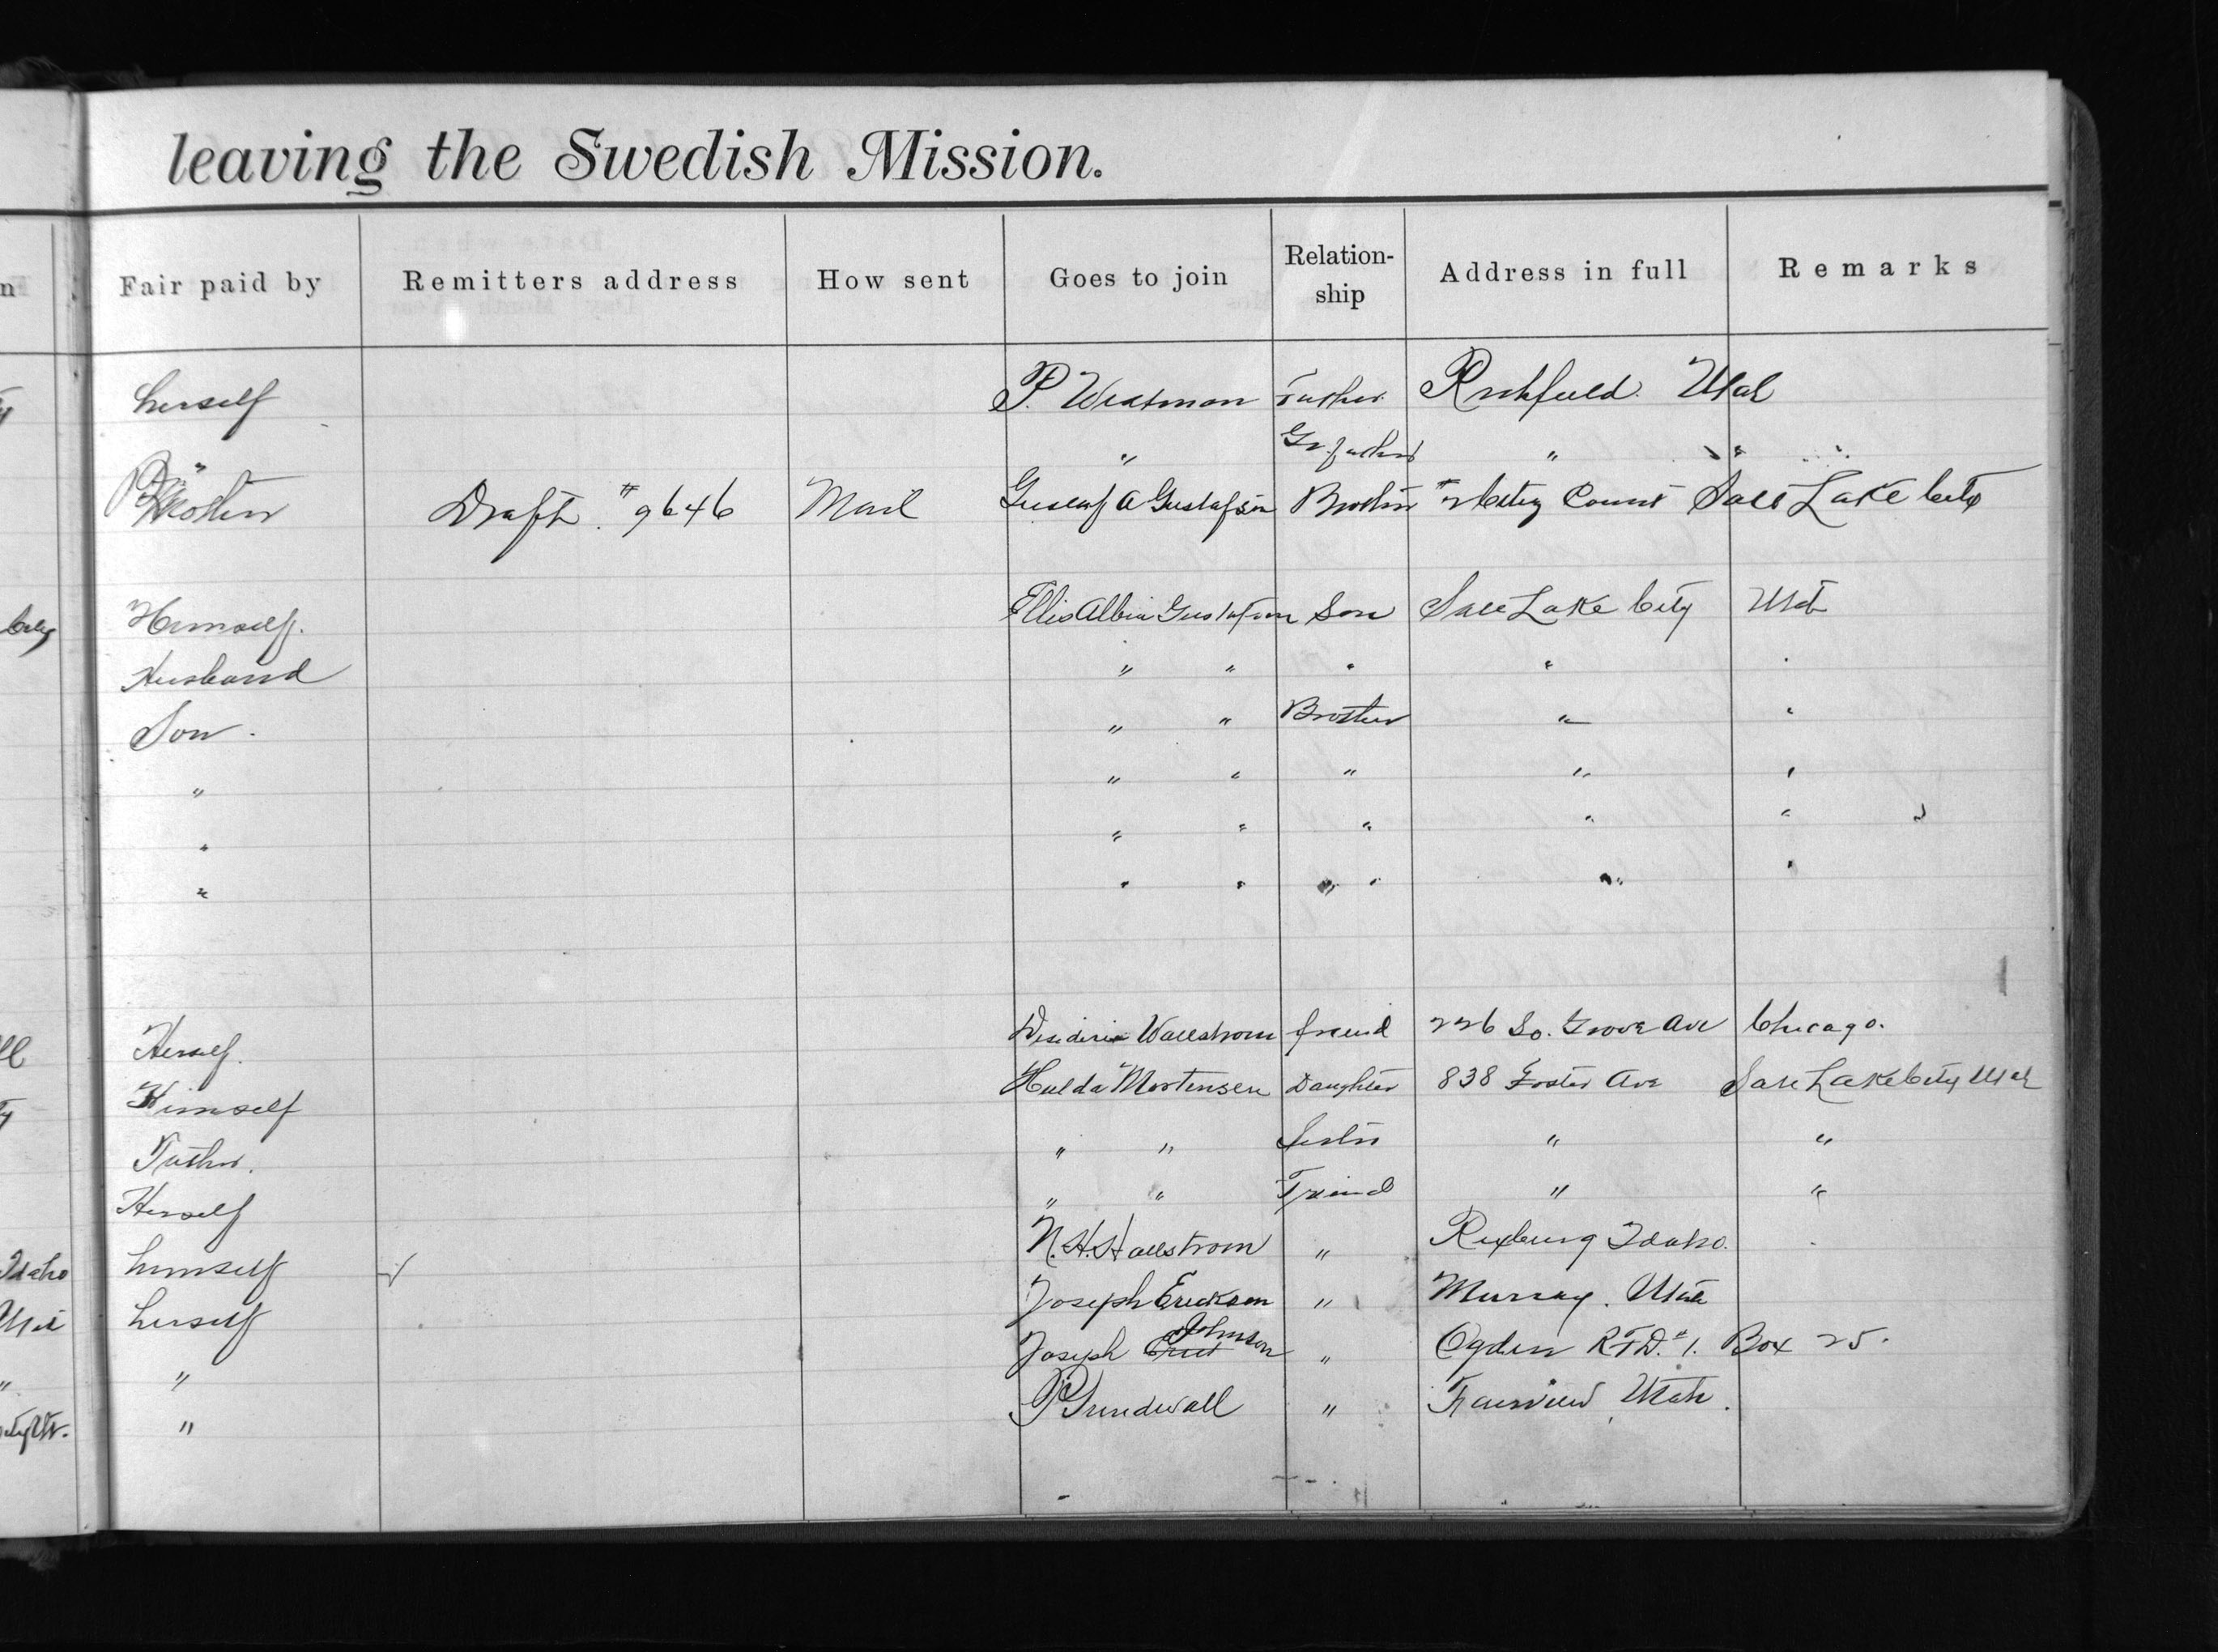 leaving the Swedish Mission.
n Fair paid by Remitters address How sent Goes to join Relation-ship Address in full Remarks
herself P. Westman Father Richfield Utah
" " Gr. father " "
Brother Draft # 9646 Mail Gustaf A Gustafson Brother #2 City Court Salt Lake City
City Himself. Ellis Albin Gustafson Son Salt Lake City Utah
Husband " " " " "
Son. " " Brother " "
" " " " " "
" " " " " "
" " " " " "
Herself. Desideria Wallstrom friend 226 So. Grove Ave Chicago.
Himself Hulda Mortensen Daughter 838 Foster Ave Salt Lake City Utah
Father. " " Sister " "
Herself " " Friend " "
Idaho himself N.H. Hallstrom " Rexburg Idaho.
Utah herself Joseph Erickson " Murray. Utah
" " Joseph Johnson " Ogden R.F.D. #1. Box 25.
" P Sundwall " Fairview, Utah.